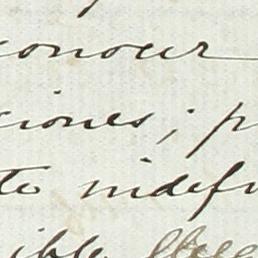 conocer
ciones; p
te indef
ible